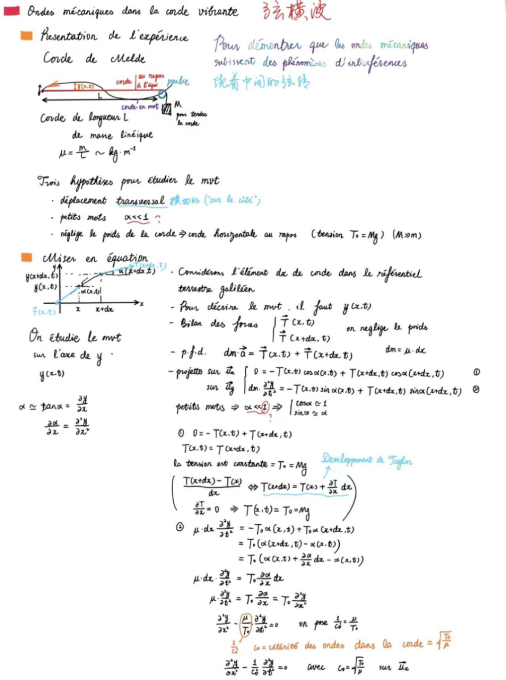 Ondes mécaniques dans la corde vibrante 弦横波
Presentation de l'expérience
Corde de Melde
Pour démontrer que les ondes mécaniques
subissent des phénomènes d'interférences
绕着中间的弦转
corde au repos à l'équi
poulie
y(x,t)
L
corde en mvt
M
pour tendre la corde
Corde de longueur L
de masse linéique
μ = m/L ~ kg·m⁻¹
Trois hypothèses pour étudier le mvt
· déplacement transversal 横切的 ("sur le côté")
· petits mots α<<1 ?
· néglige le poids de la corde ⇒ corde horizontale au repos (tension T₀ = Mg) (M≫m)
Miser en équation
T(x+dx,t)
y(x+dx,t)
α(x+dx,t)
y(x,t)
α(x,t)
T(x,t)
x x+dx x
On étudie le mvt
sur l'axe de y.
y(x,t)
α ≃ tanα = ∂y/∂x
∂α/∂x = ∂²y/∂x²
- Considerons l'élément dx de corde dans le référentiel
terrestre galiléen
- Pour décrire le mvt, il faut y(x,t)
- Bilan des forces | T(x,t) on neglige le poids
T(x+dx,t)
- p.f.d. dm·a = T(x,t) + T(x+dx,t) dm = μ·dx
- projette sur ux { 0 = -T(x,t) cosα(x,t) + T(x+dx,t) cosα(x+dx,t) ①
sur uy { dm·∂²y/∂t² = -T(x,t) sinα(x,t) + T(x+dx,t) sinα(x+dx,t) ②
petits mots ⇒ α<<1 ⇒ | cosα ≃ 1
? sinα ≃ α
① 0 = -T(x,t) + T(x+dx,t)
T(x,t) = T(x+dx,t)
Developpement de Taylor
la tension est constante = T₀ = Mg
( T(x+dx) - T(x) / dx ⇔ T(x+dx) = T(x) + ∂T/∂x dx
∂T/∂x = 0 ⇒ T(x,t) = T₀ = Mg )
② μ·dx ∂²y/∂t² = -T₀ α(x,t) + T₀ α(x+dx,t)
= T₀ (α(x+dx,t) - α(x,t))
= T₀ (α(x,t) + ∂α/∂x dx - α(x,t))
μ·dx·∂²y/∂t² = T₀ ∂α/∂x dx
μ·∂²y/∂t² = T₀ ∂α/∂x = T₀ ∂²y/∂x²
∂²y/∂x² - μ/T₀ ∂²y/∂t² = 0 on pose 1/c₀² = μ/T₀
1/c₀² c₀ = célérité des ondes dans la corde = √(T₀/μ)
∂²y/∂x² - 1/c₀² ∂²y/∂t² = 0 avec c₀ = √(T₀/μ) sur ux